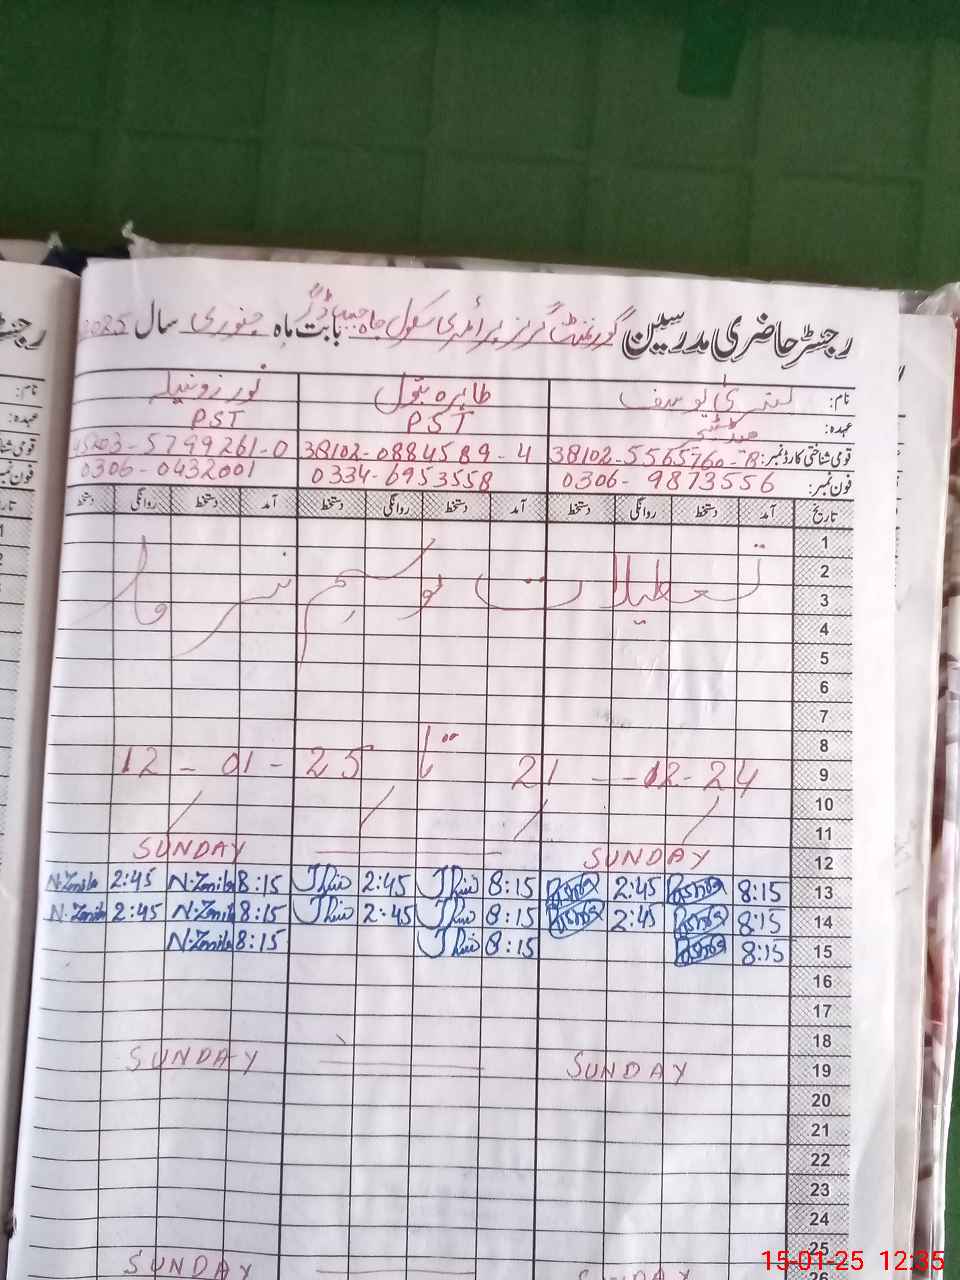 رجسٹر حاضری مدرسین گورنمنٹ گرلز پرائمری سکول چاہ بابت ماہ جنوری سال 2025
نام: بشریٰ یوسف طاہرہ بتول نور زونیلہ
عہدہ: PST PST
قومی شناختی کارڈ نمبر: 38102-5565760- 38102-0884589-4 45203-5799261-0
فون نمبر: 0306-9873556 0334-6953558 0306-0432001
تاریخ آمد دستخط روانگی دستخط آمد دستخط روانگی دستخط آمد دستخط روانگی دستخط
1
2 تعطیلات موسم سرما
3
4
5
6
7
8
9 21-12-24 تا 12-01-25
10
11
12 SUNDAY SUNDAY
13 8:15 2:45 8:15 2:45 8:15 N.Zonila 2:45 N.Zonila
14 8:15 2:45 8:15 2:45 8:15 N.Zonila 2:45 N.Zonila
15 8:15 8:15 8:15 N.Zonila
16
17
18
19 SUNDAY SUNDAY
20
21
22
23
24
25
26 SUNDAY SUNDAY
15-01-25 12:35